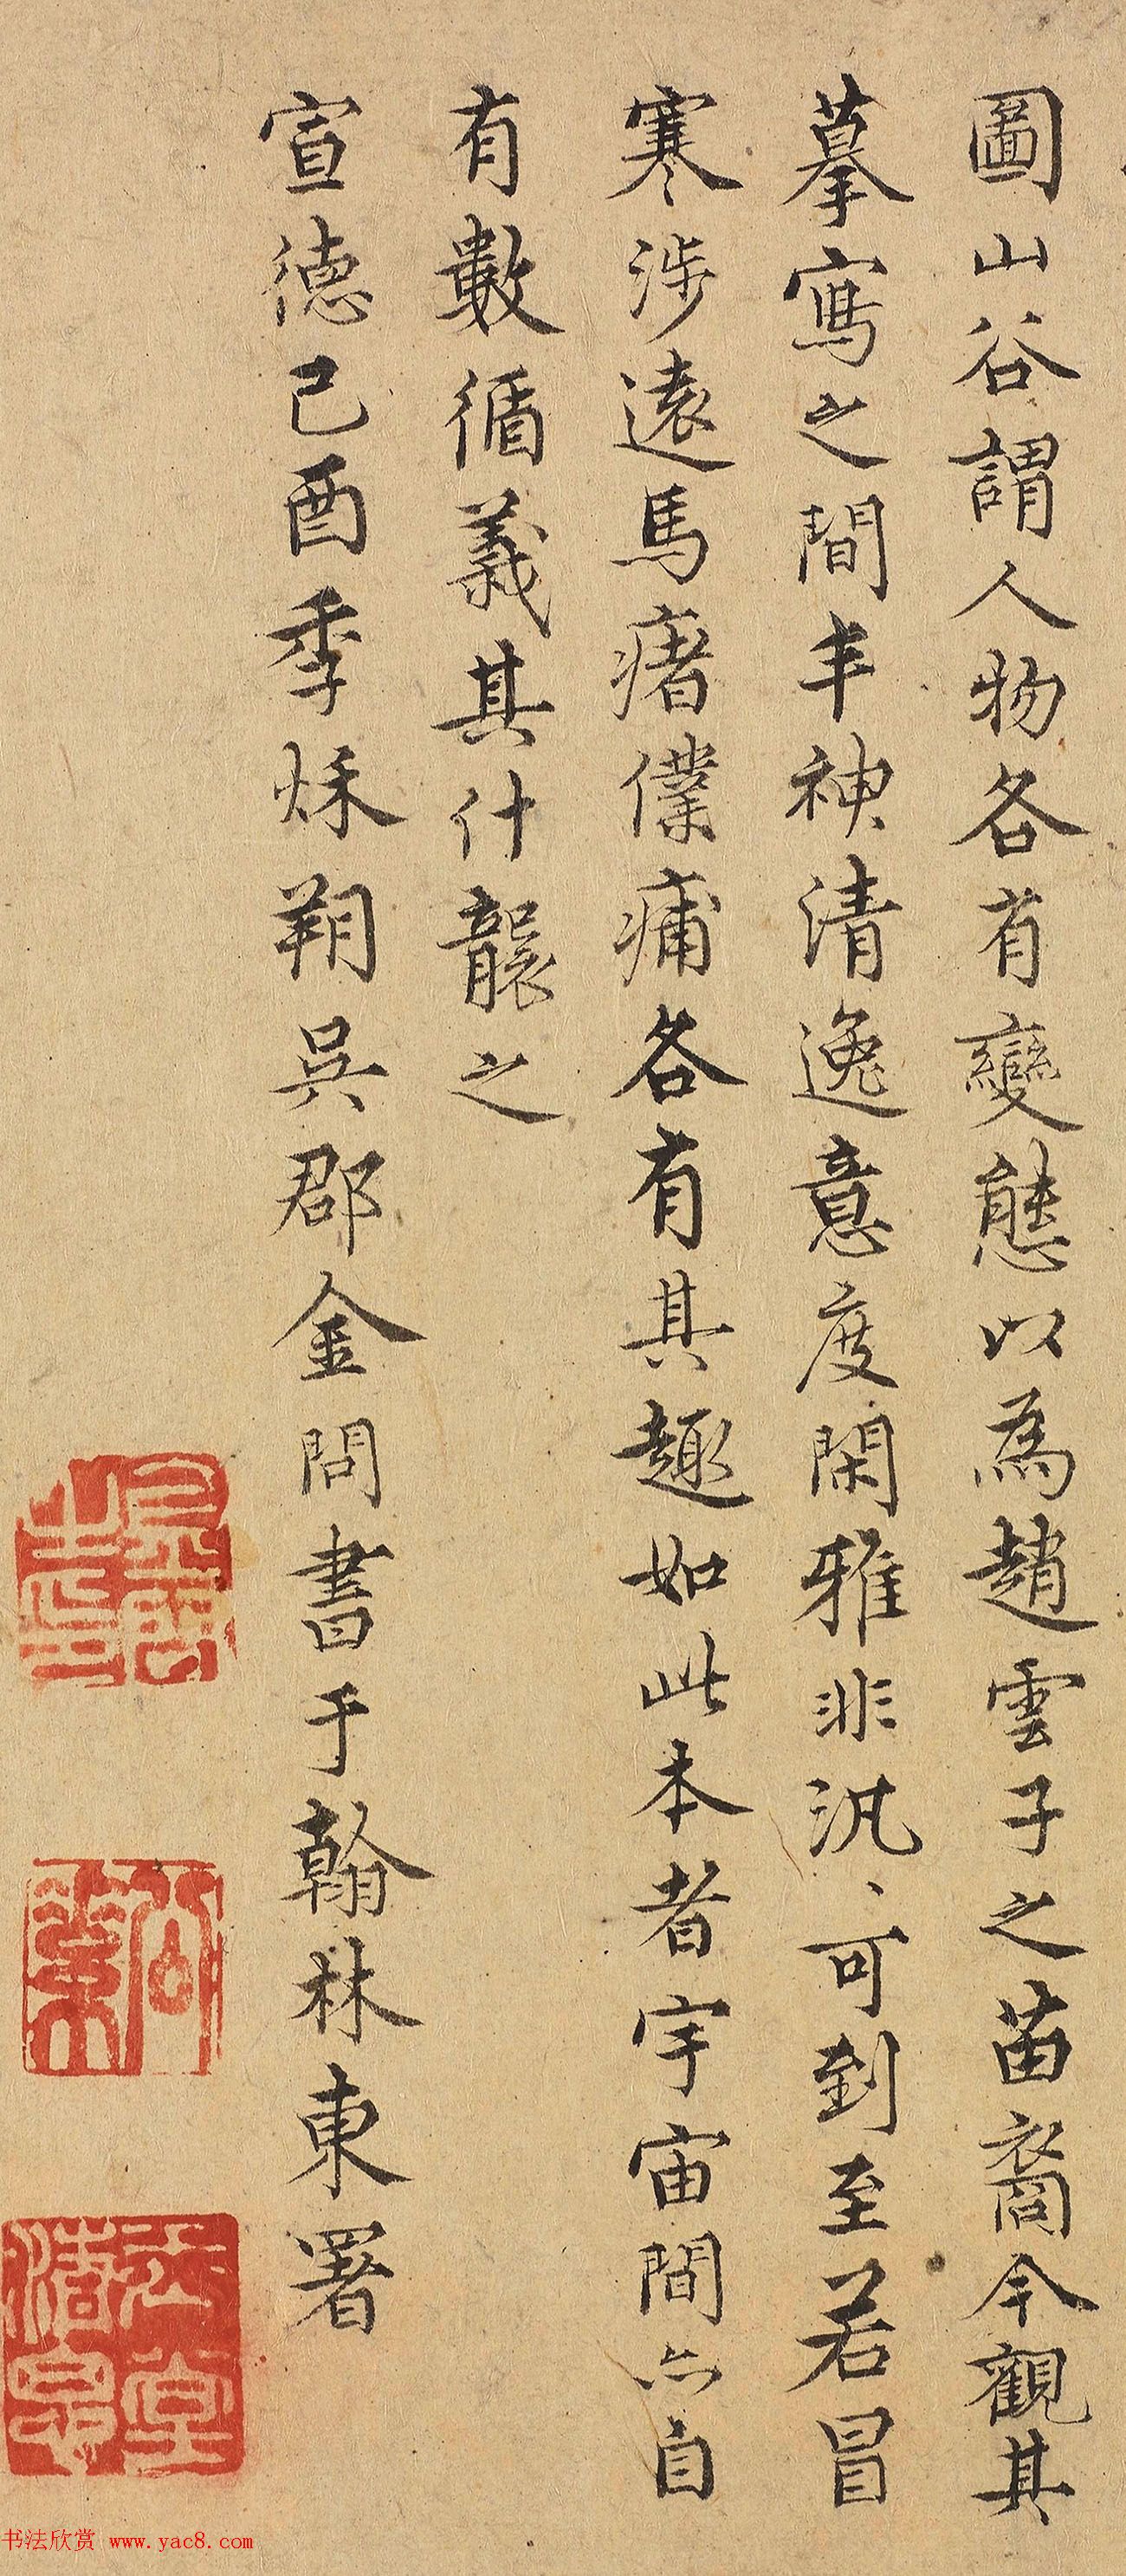 圖山谷謂人物各有變態以為趙雲子之苗裔今觀其
摹寫之間丰神清逸意度閑雅非汎、可到至若冒
寒涉遠馬瘏僕痡各有其趣如此本者宇宙間亦自
有數循義其什襲之
宣德己酉季秌朔吳郡金問書于翰林東署
书法欣赏 www.yac8.com